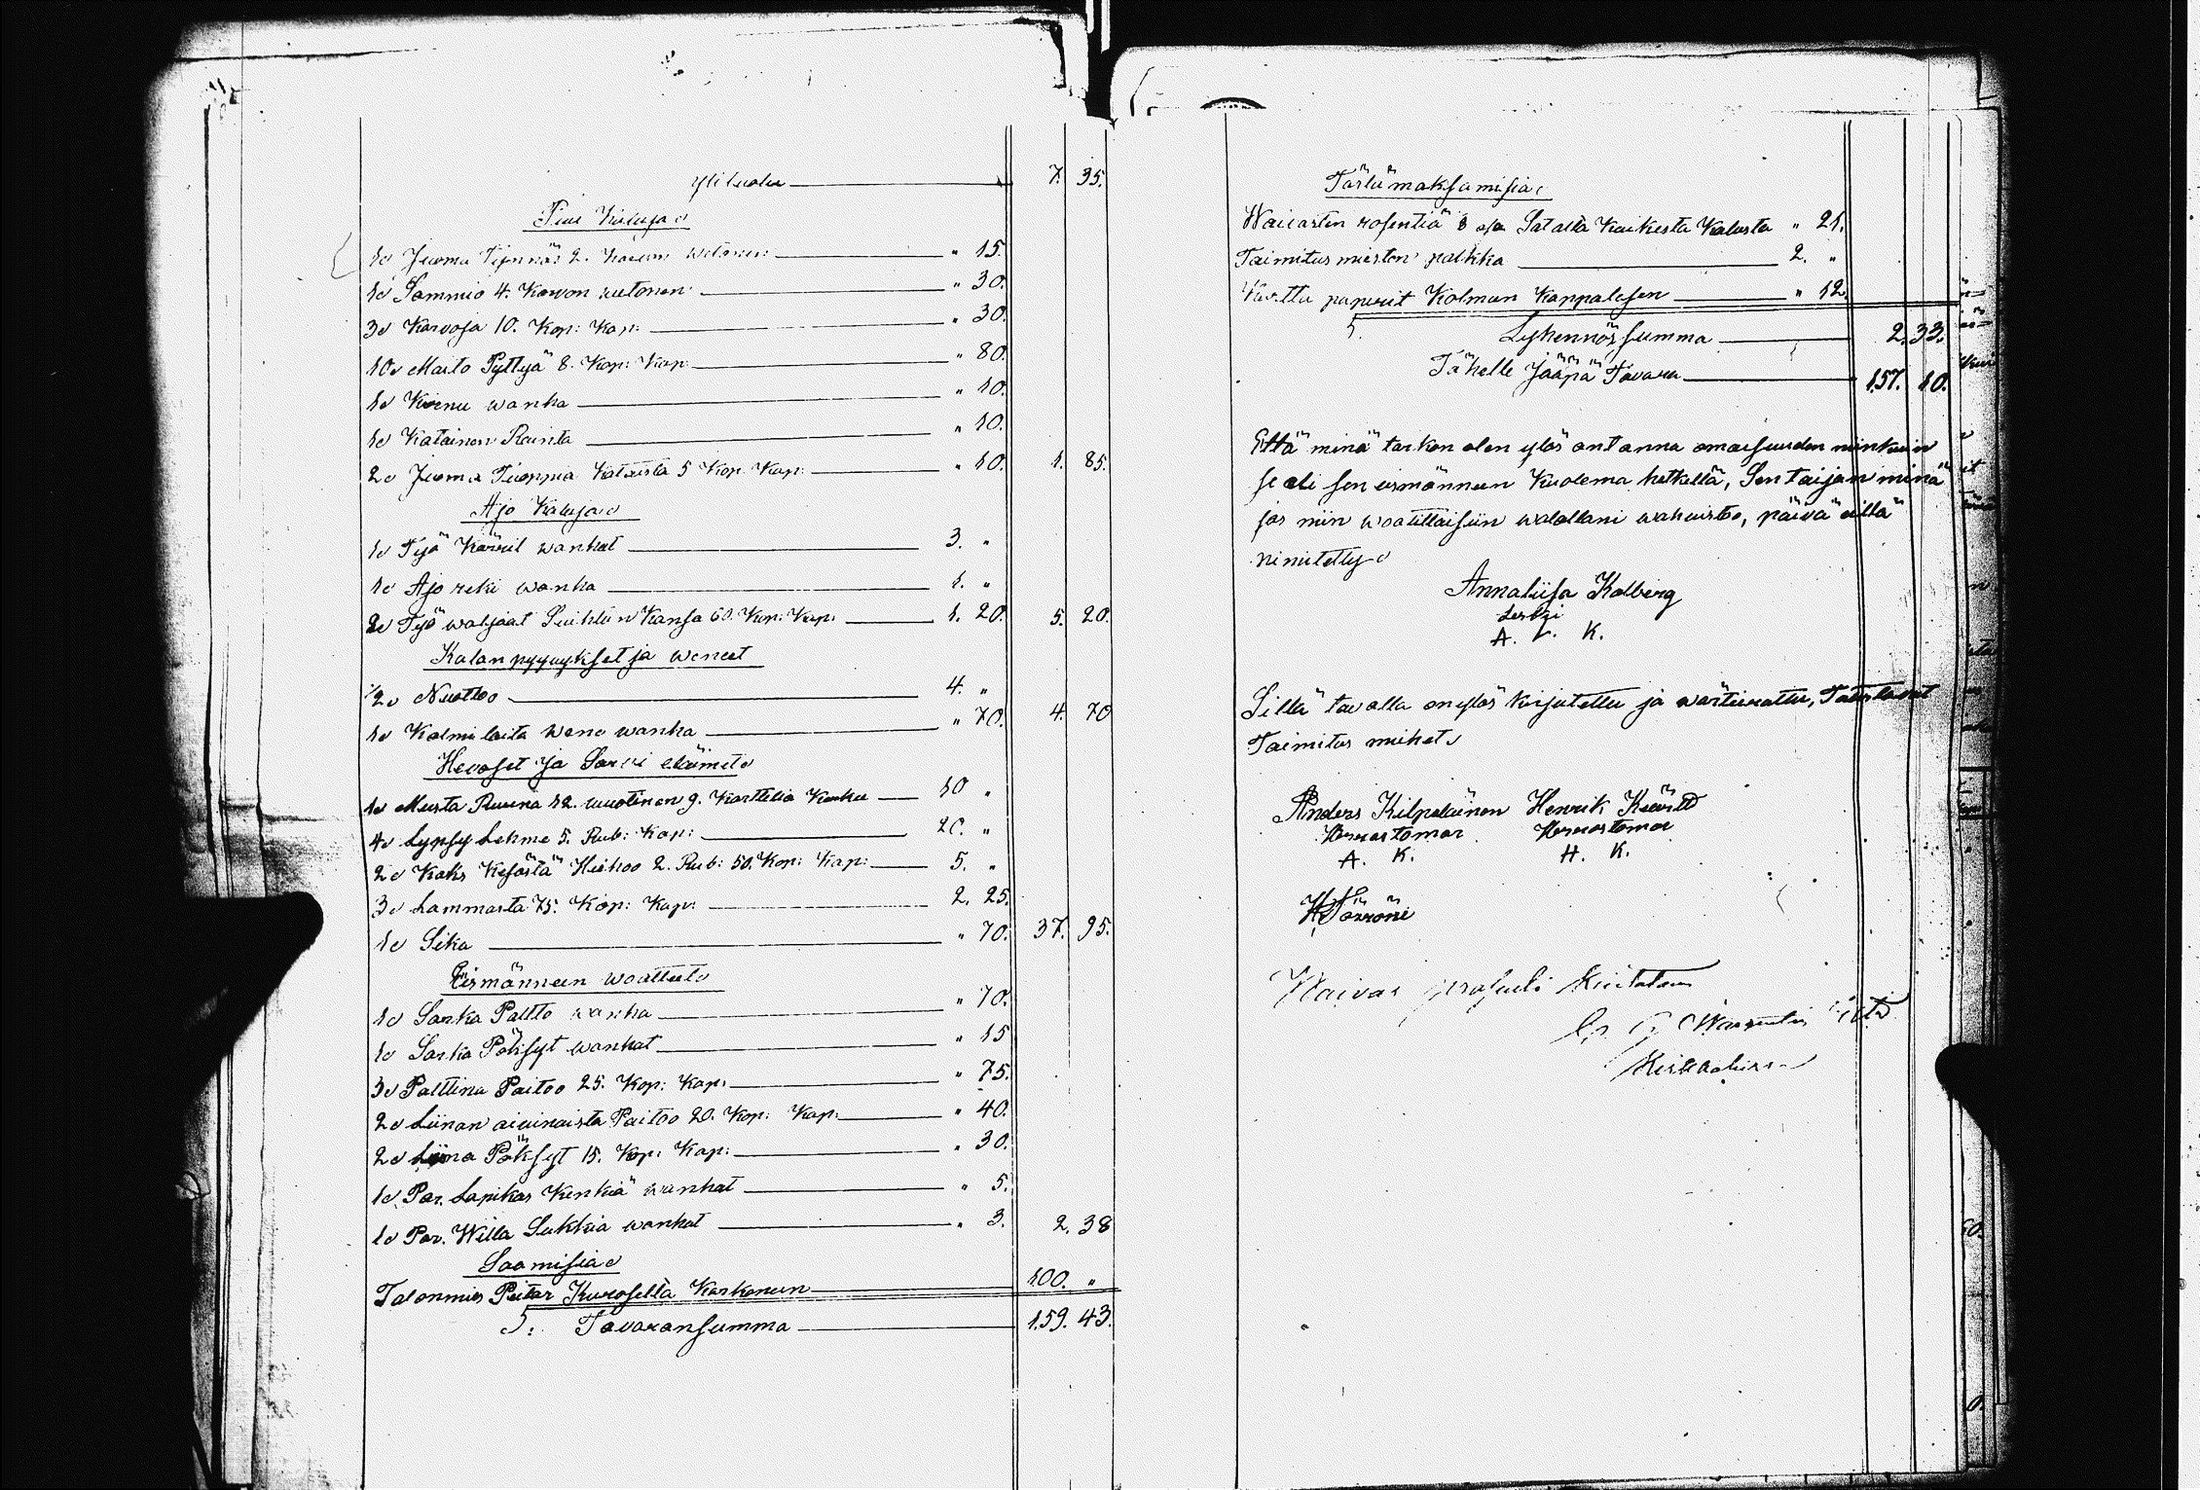 Ylituotu 7. 35.
Puu Kaluja
1 Juoma Tynnöri 2. Karvon wetonen " 15.
1 Sammio 4. Karvon wetonen " 30.
3 Karvoja 10. Kop: Kap: " 30.
10 Maito Pyttyä 8. Kop: Kap: " 80.
1 Kirnu wanha " 10.
1 Katainen Rainta " 10.
2 Juoma Tuoppia Kataista 5 Kop Kap: " 10. 1. 85.
Ajo Kaluja
1 Työ Kärrit wanhat 3. "
1 Ajo reki wanha 1. "
2 Työ waljaat Suihtiin Kansa 60. Kop: Kap: 1. 20. 5. 20.
Kalan pyyvykset ja weneet
1/2 Nuottoo 4. "
1 Kolmi laita wene wanha " 70. 4. 70
Hevoset ja Sarvi eläimet
1 Musta Ruuna 12. wuotinen 9. Korttelia Korkee 10 "
4 Lypsy Lehme 5. Rub: Kap: 20. "
2 Kaks Kesästä Hiehoo 2. Rub: 50. Kop: Kap: 5. "
3 Lammasta 75. Kop: Kap: 2. 25.
1 Sika " 70. 37. 95.
Eismänneen woatteet
1 Sarka Paltto wanha " 70.
1 Sarka Pöksyt wanhat " 15
3 Palttina Paitoo 25. Kop: Kap: " 75.
2 Liinan aiwinaista Paitoo 20. Kop: Kap: " 40.
2 Liina Pöksyt 15. Kop: Kap: " 30.
1 Par. Lapikas Kenkiä wanhat " 5.
1 Par. Willa Sukkia wanhat " 3. 2. 38
Saamisia
Talonmies Petter Kuroselta Karkanen 100. "
S: Tavaransumma 159. 43.
Tästä maksamisia
Waivasten rosentiä 1/8 osa Satalta Kaikesta Kalusta " 21.
Toimitus miesten palkka 2. "
Kartta paperit Kolmeen Kappalesen " 12.
S. Lyhennös summa 2. 33.
Tähelle Jääpä Tavara 157. 10.
Että minä tarkon olen ylös antanna omaisuuden niinkuin
se oli sen eismänneen Kuolema hetkellä, Sen taijan minä
jos niin woatittaisiin walallani wahvistoo, päivä eillä
nimitetty
Annaliisa Kolberg
Leski
A. L. K.
Sillä tavalla on ylös kirjutettu ja wärteerattu, Totistavat
Toimitus miehet
Anders Kilpeläinen Henrik
Herrastomar Herrastomar
A. K. H. K.
Waivas